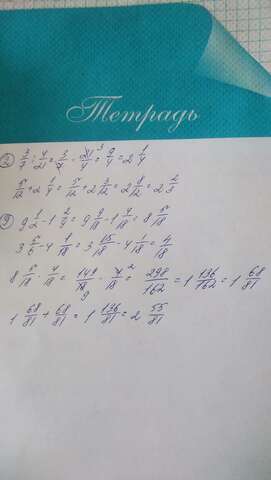 Тетрадь
2) 3/7 : 4/21 = 3/7 · 21/4 3 = 9/4 = 2 1/4
5/12 + 2 1/4 = 5/12 + 2 3/12 = 2 8/12 = 2 2/3
9 1/2 - 1 2/9 = 9 9/18 - 1 4/18 = 8 5/18
3 5/6 - 4 1/18 = 3 15/18 - 4 1/18 = 4/18
8 5/18 · 4/18 = 149/18 9 · 4/18 2 = 298/162 = 1 136/162 = 1 68/81
1 68/81 + 68/81 = 1 136/81 = 2 55/81